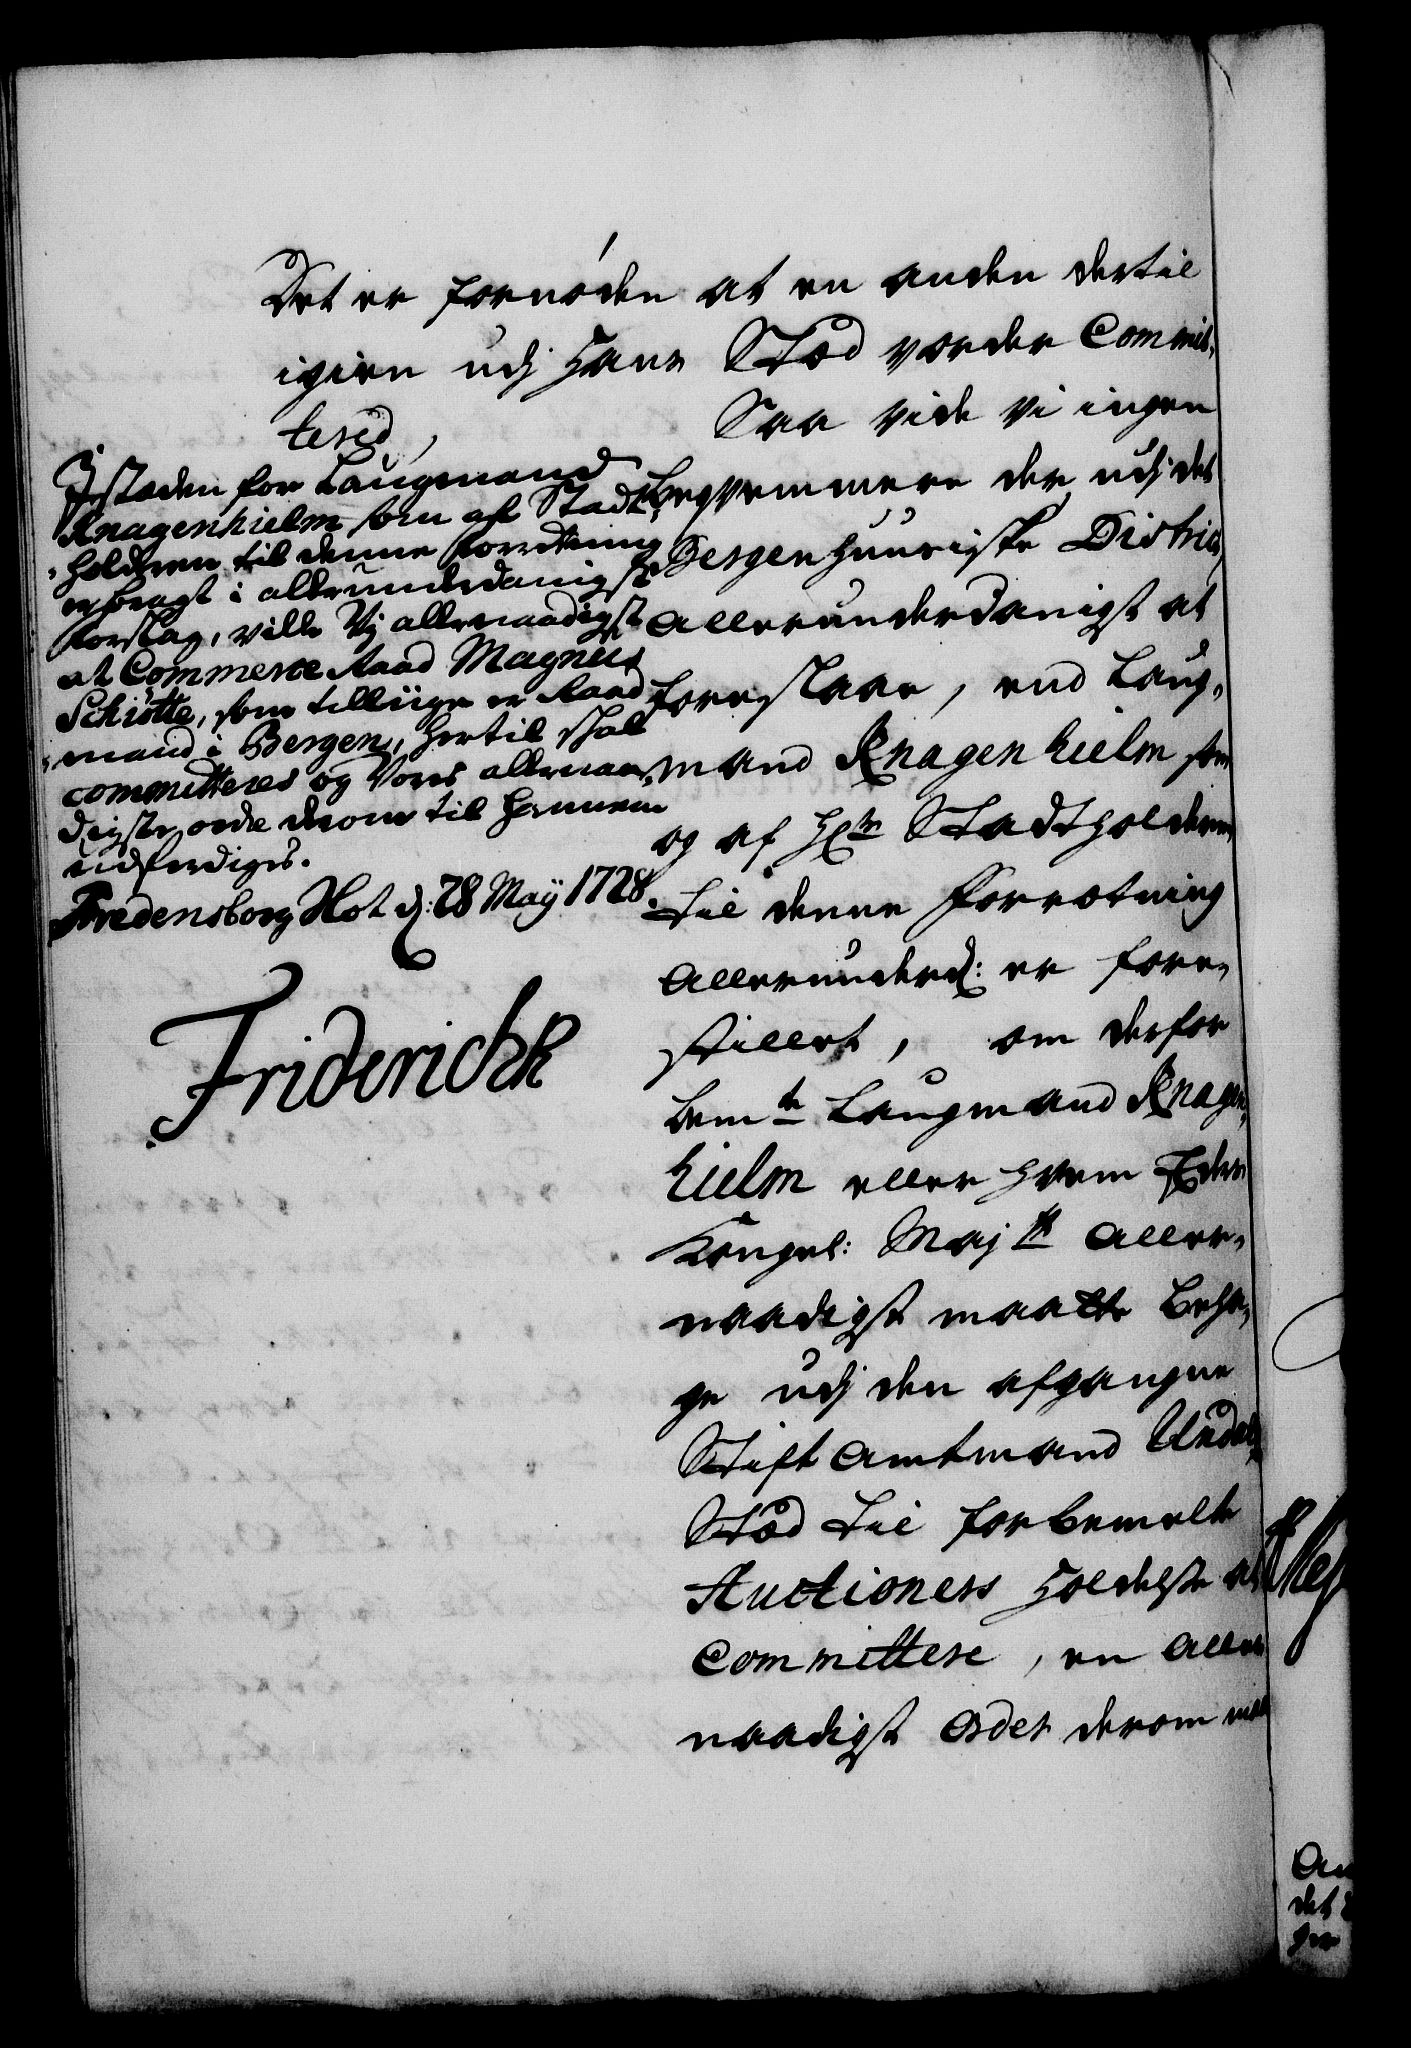 Det er fornøden at en anden dertil
igien udj Hans Stæd vorder Commit-
tered, Saa vide vi ingen
beqvemmere der udj det
Bergenhuusiske District,
allerunderdanigst at
foreslaae, end Laug-
mand Knagenhielm som
og af Hr Stadtholderen
til denne Forretning
allerunderd: er fore-
stillet, om derfor
bemte Laugmand Knagen-
hielm eller hvem Eders
Kongel: Majts aller-
naadigst maatte beha-
ge udj den afgangne
Stift Amtmand Undals
Stæd til forbemelte
Auctioners Holdelse at
Committere, en aller-
naadigst Ordes derom
Jstæden for Laugmand
Knagenhielm som af Stadt-
holderen til denne forretning
er bragt i allerunderdanigst
forslag, ville Vj allernaadigst
at Commerce Raad Magnus
Schiøtte, som tilliige er Raad-
mand i Bergen, hertil skal
committeres og Vores allernaa-
digste ordre derom til hannem
udferdiges.
Fredensborg Slot d: 28 Maÿ 1728.
Friderich R